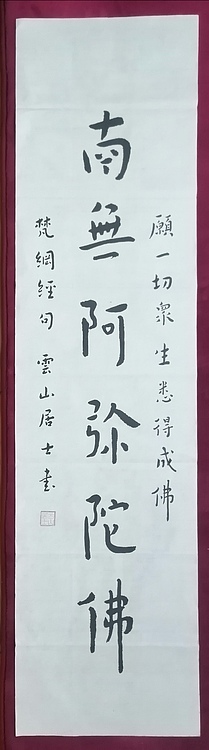 願一切衆生悉得成佛
南無阿弥陀佛
梵綱經句 雲山居士書